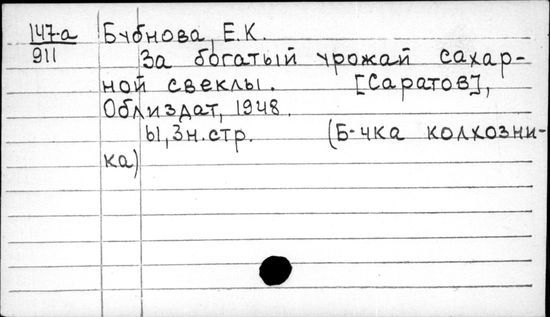 147-а Бубнова, Е.К.
911 За богатый урожай сахар-
ной свеклы. [Саратов],
Облиздат, 1948.
61, 3н.стр. (Б-чка колхозни-
ка)